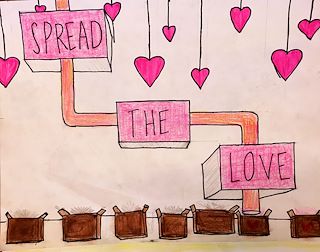 SPREAD
THE
LOVE